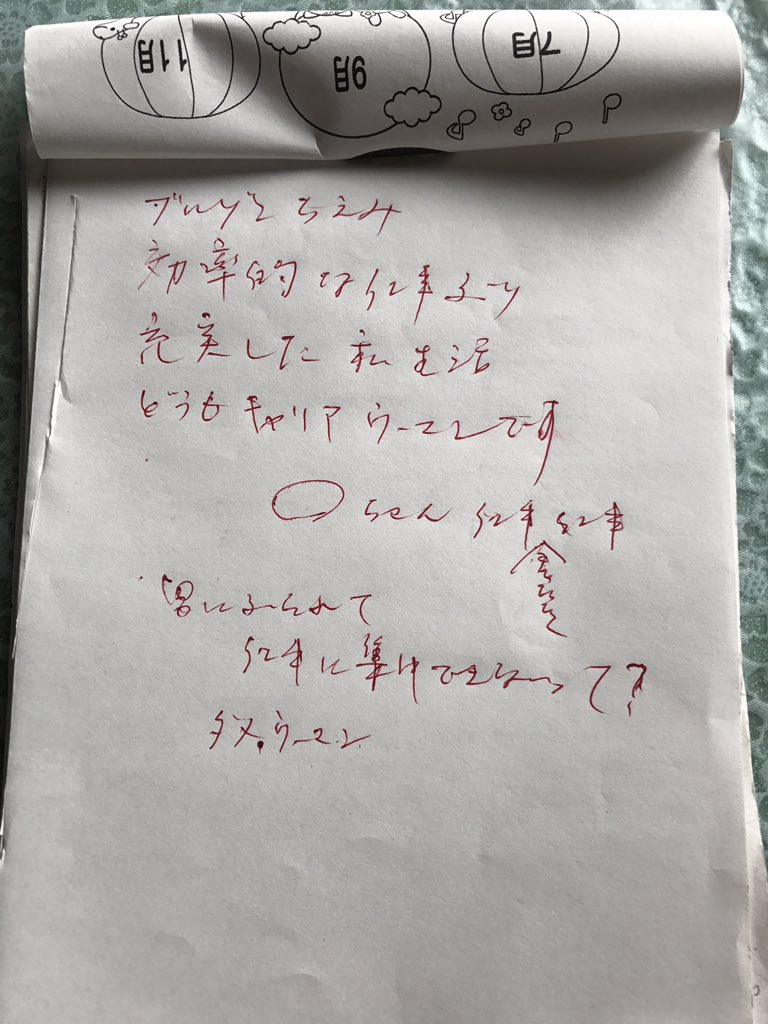 11月
9月
7月
ブルゾンちえみ
効率的な仕事ぶり
充実した 私生活
どうもキャリアウーマンです
ちゃん 仕事 仕事
男にふられて
仕事に集中できないって?
ダメウーマン